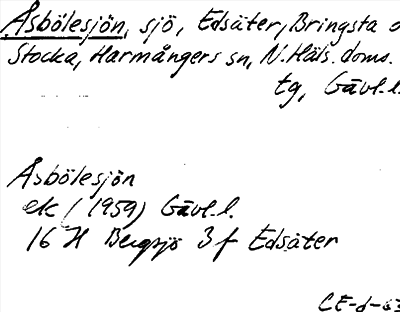 Åsbölesjön, sjö, Edsäter, Bringsta o
Stocka, Harmångers sn, N. Häls. doms.
tg, Gävl. l.
Åsbölesjön
ek (1959) Gävl. l.
16 H Bergsjö 3 f Edsäter
CE-d-63